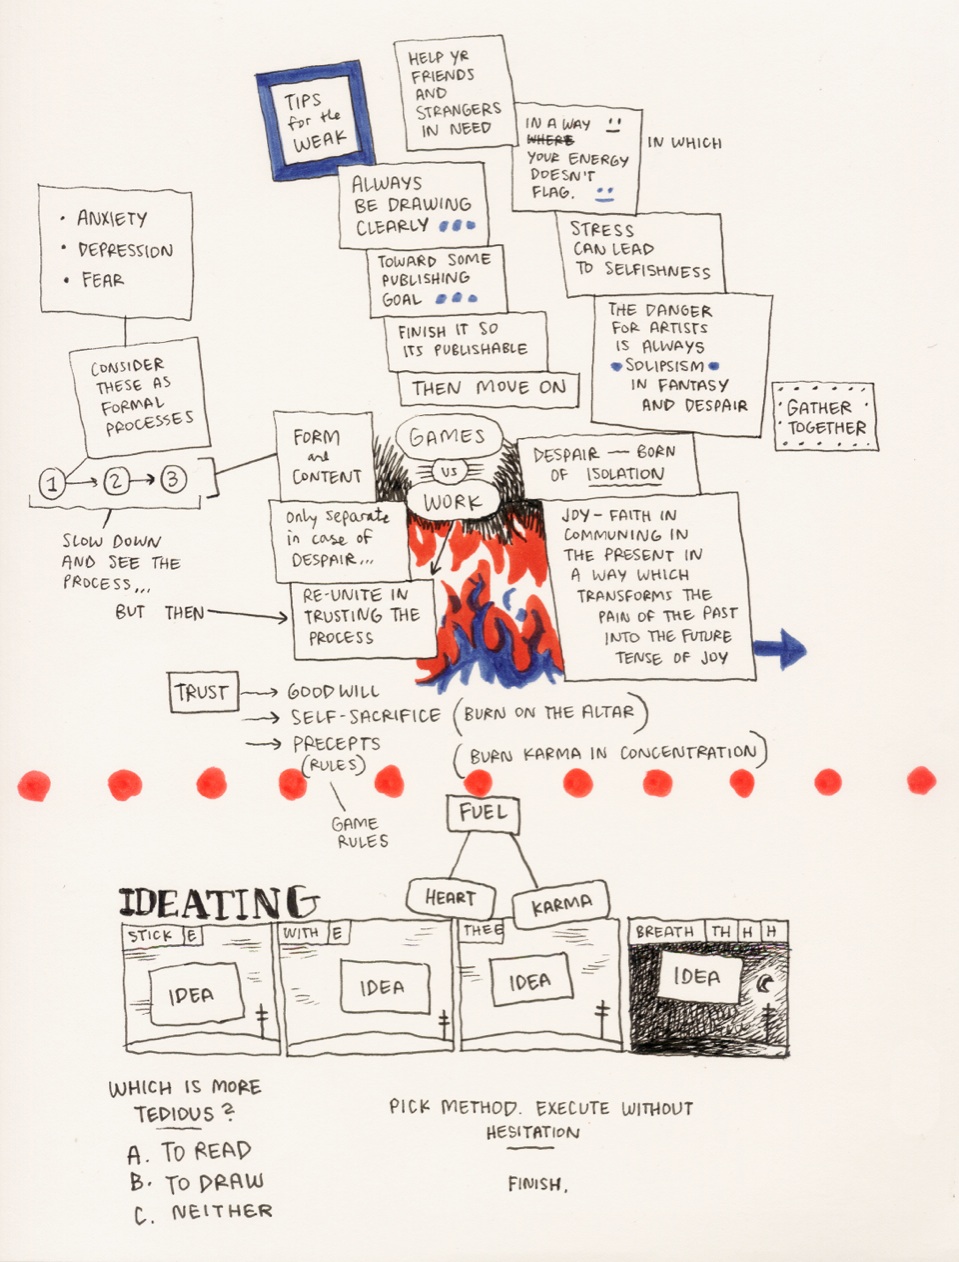 TIPS
for the
WEAK
HELP YR
FRIENDS
AND
STRANGERS
IN NEED
IN A WAY
WHERE
IN WHICH
YOUR ENERGY
DOESN'T
FLAG.
ALWAYS
BE DRAWING
CLEARLY
TOWARD SOME
PUBLISHING
GOAL
FINISH IT SO
ITS PUBLISHABLE
THEN MOVE ON
STRESS
CAN LEAD
TO SELFISHNESS
THE DANGER
FOR ARTISTS
IS ALWAYS
SOLIPSISM
IN FANTASY
AND DESPAIR
GATHER
TOGETHER
• ANXIETY
• DEPRESSION
• FEAR
CONSIDER
THESE AS
FORMAL
PROCESSES
1 2 3
SLOW DOWN
AND SEE THE
PROCESS...
BUT THEN
FORM
and
CONTENT
only separate
in case of
DESPAIR...
RE-UNITE IN
TRUSTING THE
PROCESS
GAMES
VS
WORK
DESPAIR — BORN
OF ISOLATION
JOY - FAITH IN
COMMUNING IN
THE PRESENT IN
A WAY WHICH
TRANSFORMS THE
PAIN OF THE PAST
INTO THE FUTURE
TENSE OF JOY
TRUST → GOODWILL
→ SELF-SACRIFICE (BURN ON THE ALTAR)
→ PRECEPTS
(RULES)
(BURN KARMA IN CONCENTRATION)
GAME
RULES
FUEL
HEART
KARMA
IDEATING
STICK E
WITH E
THEE
BREATH TH H H
IDEA
IDEA
IDEA
IDEA
WHICH IS MORE
TEDIOUS?
A. TO READ
B. TO DRAW
C. NEITHER
PICK METHOD. EXECUTE WITHOUT
HESITATION
FINISH.